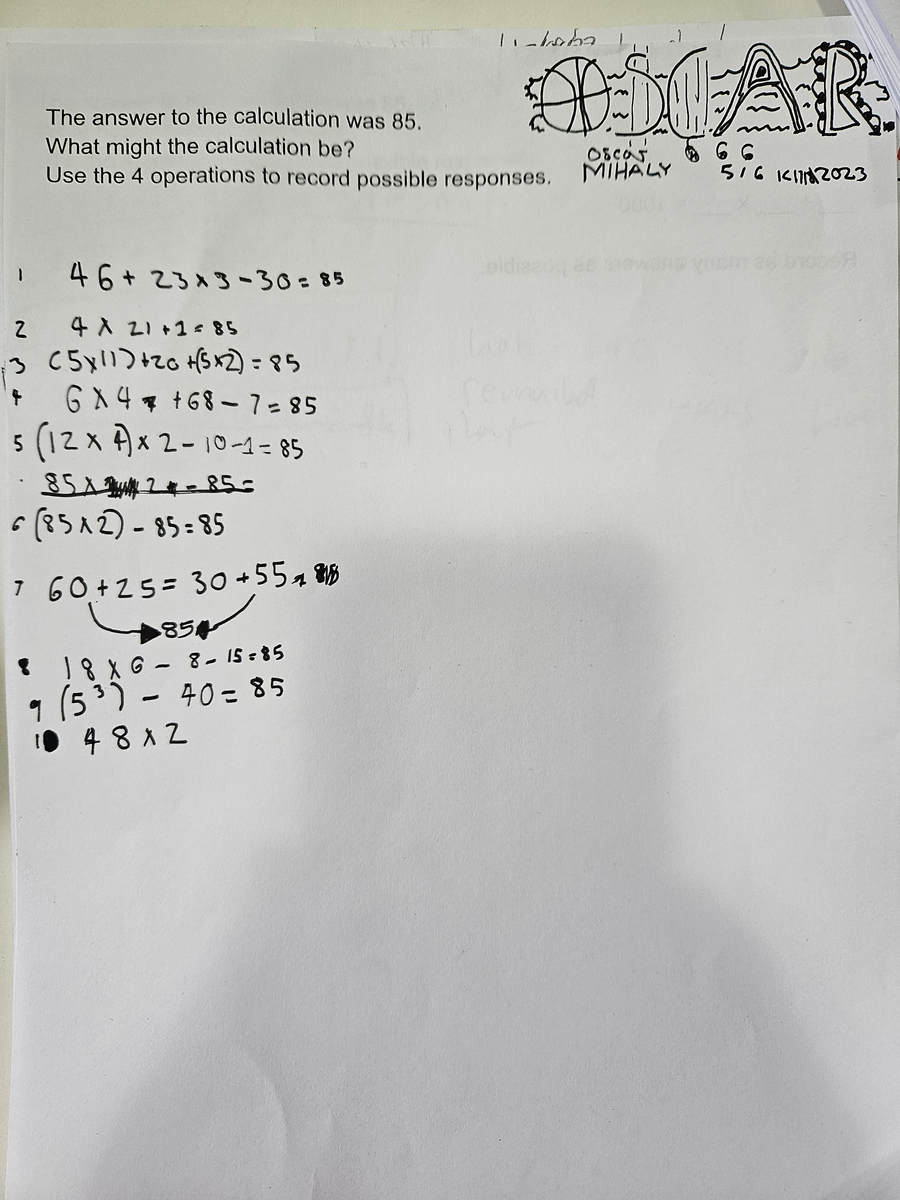 OSCAR
The answer to the calculation was 85.
What might the calculation be?
Use the 4 operations to record possible responses.
Oscar 6 6
MIHALY 5/6 2023
1 46 + 23 x 3 - 30 = 85
2 4 x 21 + 1 = 85
3 (5x11) + 20 + (5x2) = 85
4 6 x 4 + 68 - 7 = 85
5 (12 x 4) x 2 - 10 - 1 = 85
85 x 2 - 85 =
6 (85 x 2) - 85 = 85
7 60 + 25 = 30 + 55
85
8 18 x 6 - 8 - 15 = 85
9 (5³) - 40 = 85
10 48 x 2